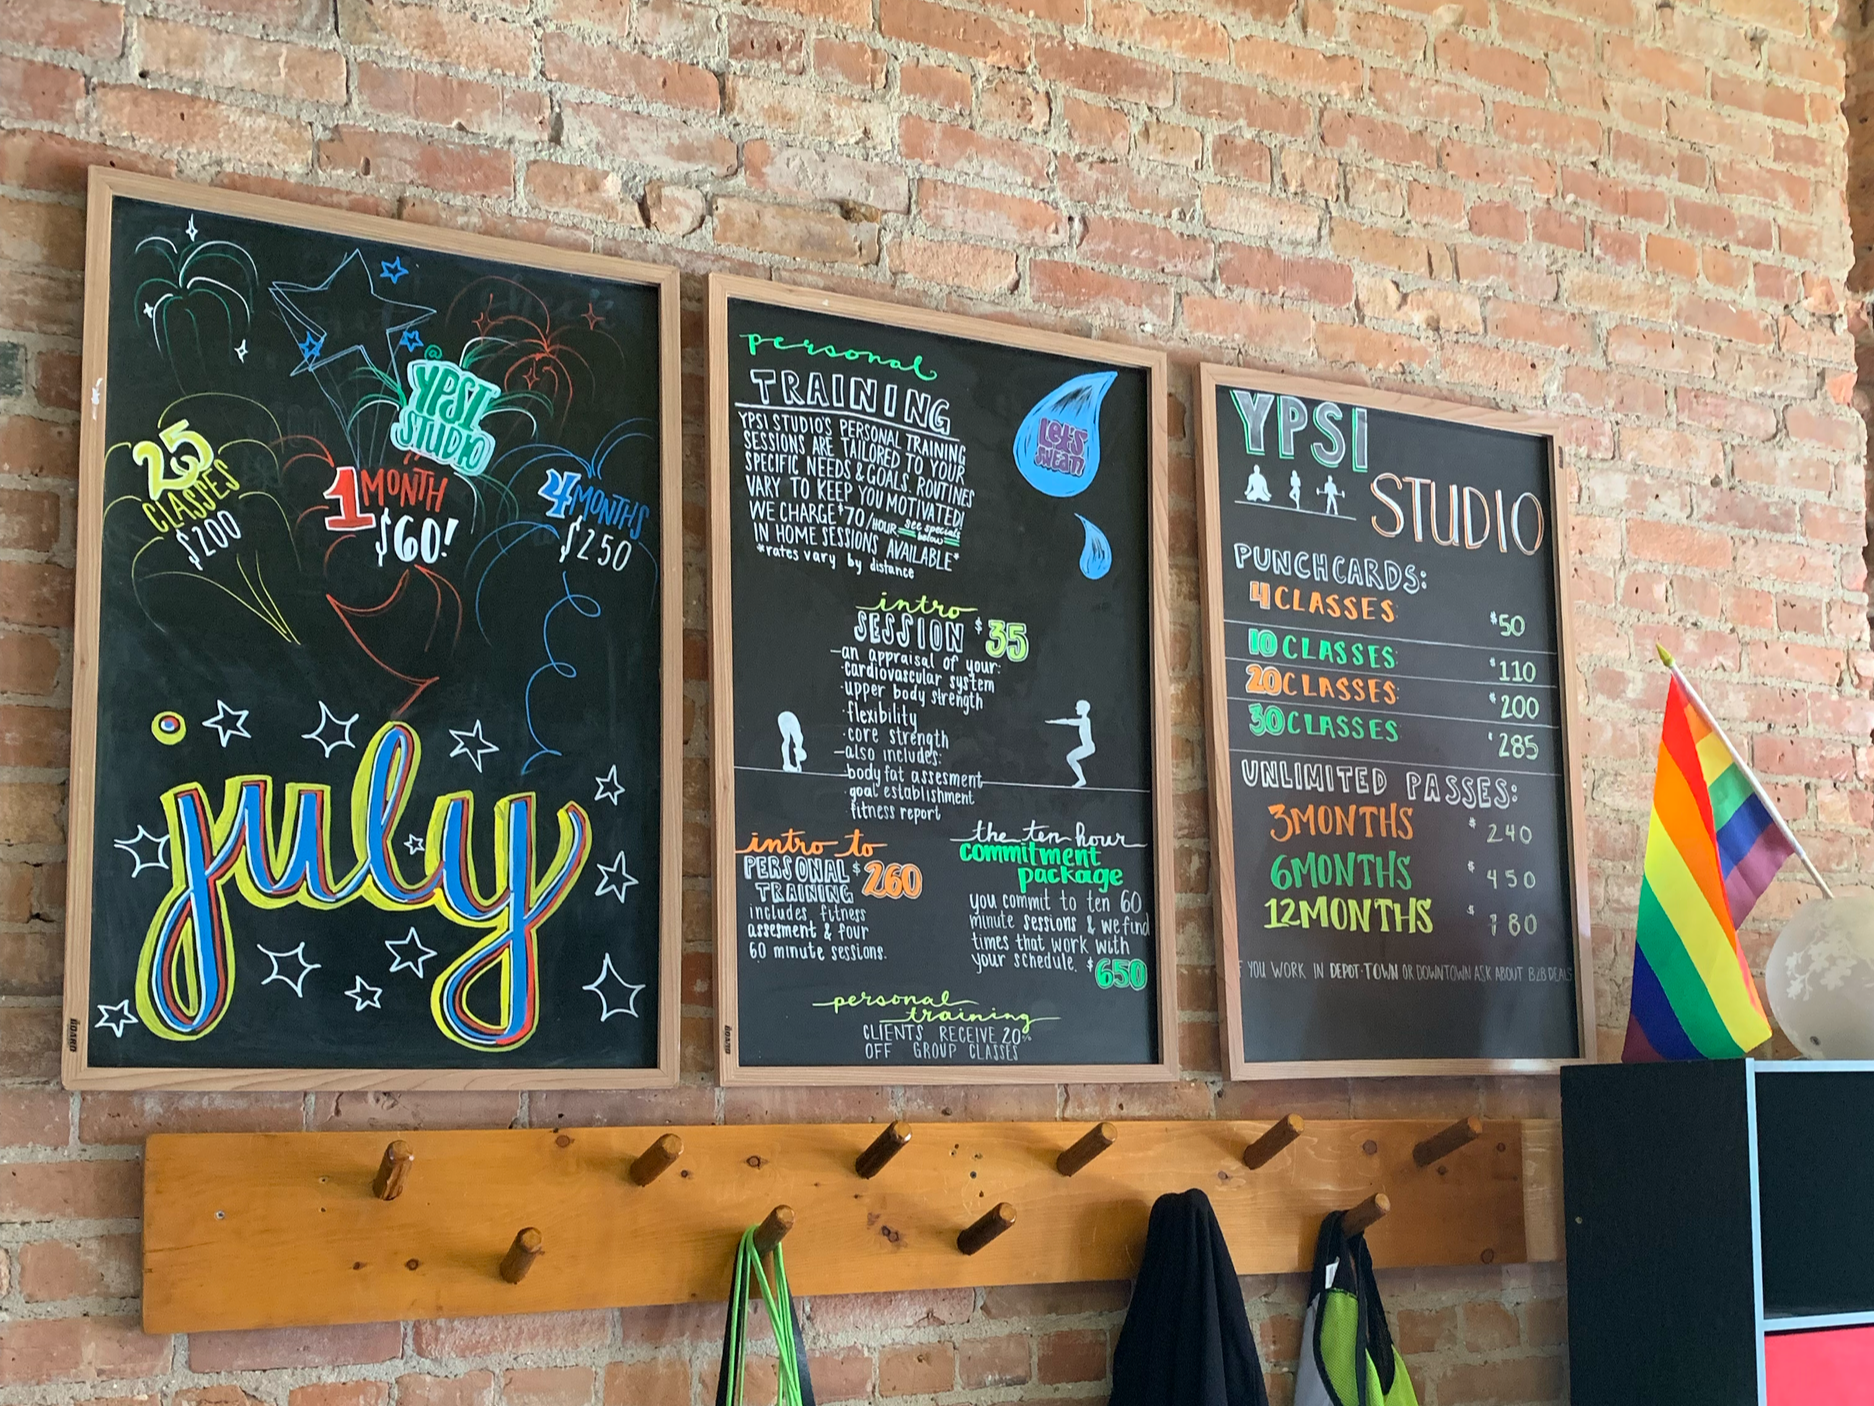 @
YPSI
STUDIO
25
CLASSES
$200
1 MONTH
$60!
4 MONTHS
$250
july
BOARD
personal
TRAINING
YPSI STUDIO'S PERSONAL TRAINING
SESSIONS ARE TAILORED TO YOUR
SPECIFIC NEEDS & GOALS. ROUTINES
VARY TO KEEP YOU MOTIVATED!
WE CHARGE $70/HOUR see specials below
IN HOME SESSIONS AVAILABLE*
*rates vary by distance
Let's
sweat!
intro
SESSION $35
-an appraisal of your:
·cardiovascular system
·upper body strength
·flexibility
·core strength
-also includes:
·body fat assesment
goal establishment
fitness report
intro to
PERSONAL $260
TRAINING
includes fitness
assesment & four
60 minute sessions.
the ten hour
commitment
package
you commit to ten 60
minute sessions & we find
times that work with
your schedule. $650
personal
training
CLIENTS RECEIVE 20%
OFF GROUP CLASSES
BOARD
YPSI
STUDIO
PUNCHCARDS:
4 CLASSES $50
10 CLASSES $110
20 CLASSES $200
30 CLASSES $285
UNLIMITED PASSES:
3 MONTHS $240
6 MONTHS $450
12 MONTHS $
YOU WORK IN DEPOT-TOWN OR DOWNTOWN ASK ABOUT B2B DEALS